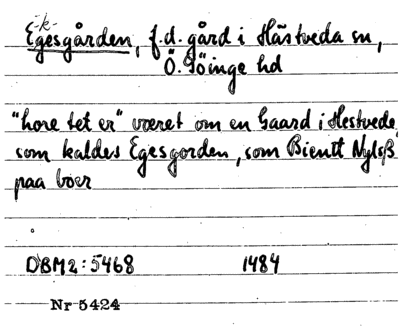 -k-
Egesgården, f.d. gård i Hästveda sn,
Ö. Göinge hd
"hore tet er" været om en Gaard i Hestvede,
som kaldes Egesgorden, som Bientt Nylsß
paa boer
DBM2:5468 1484
Nr 5424